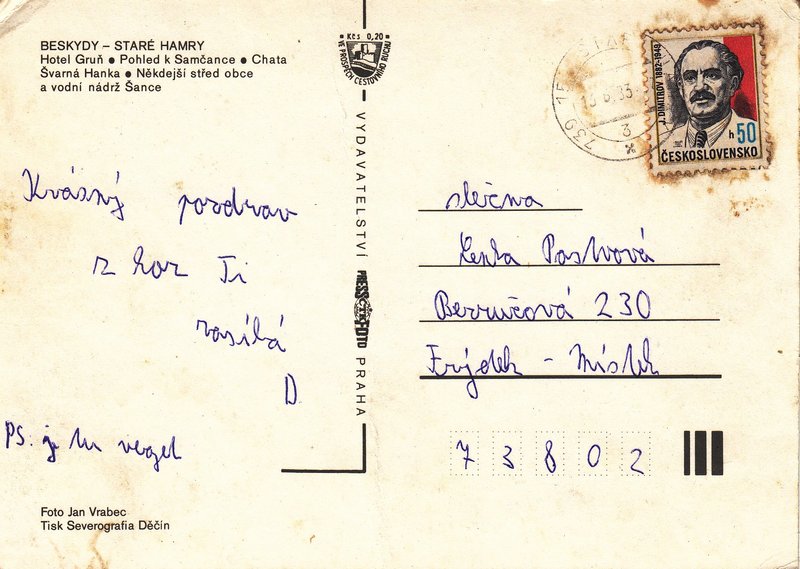 BESKYDY – STARÉ HAMRY
Hotel Gruň ● Pohled k Samčance ● Chata
Švarná Hanka ● Někdejší střed obce
a vodní nádrž Šance
Kčs 0,20
VE PROSPĚCH CESTOVNÍHO RUCHU
VYDAVATELSTVÍ
PRESSFOTO
PRAHA
Krásný pozdrav
z hor Ti
zasílá
D
PS. je tu veget
Foto Jan Vrabec
Tisk Severografia Děčín
739 15
J. DIMITROV 1882-1949
h 50
ČESKOSLOVENSKO
slečna
Lenka
Bezručová 230
Frýdek - Místek
73802